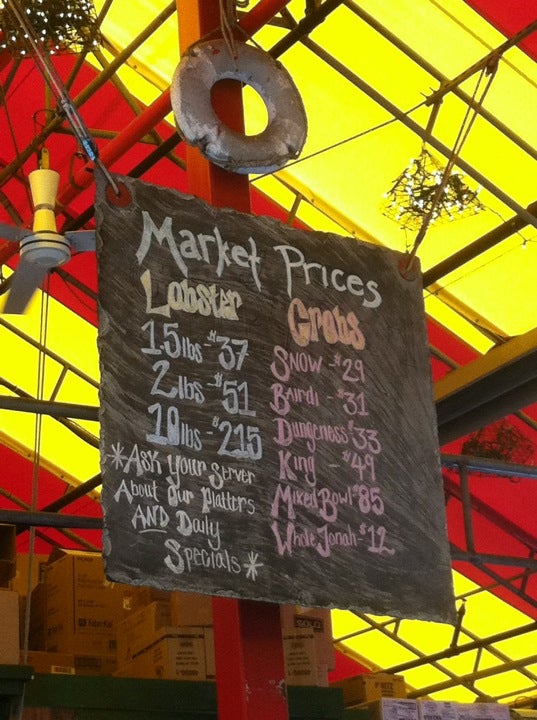 Market Prices
Lobster
1.5lbs -$37
2lbs -$51
10lbs -$215
*Ask your Server
About our platters
AND Daily
Specials*
Crabs
Snow -$29
Bairdi - $31
Dungeness $33
King - $49
Mixed Bowl $85
Whole Jonah - $12
SOLO